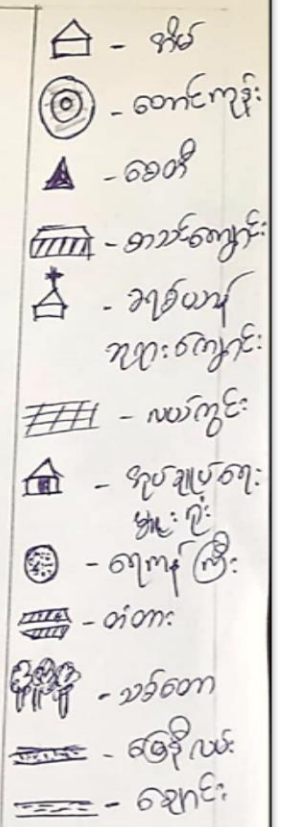 - အိမ်
- တောင်ကုန်း
- စေတီ
- စာသင်ကျောင်း
- ခရစ်ယာန်
ဘုရားကျောင်း
- လယ်ကွင်း
- အုပ်ချုပ်ရေး
မှူးရုံး
- ရေကန်ကြီး
- တံတား
- သစ်တော
- မြေနီလမ်း
- ချောင်း